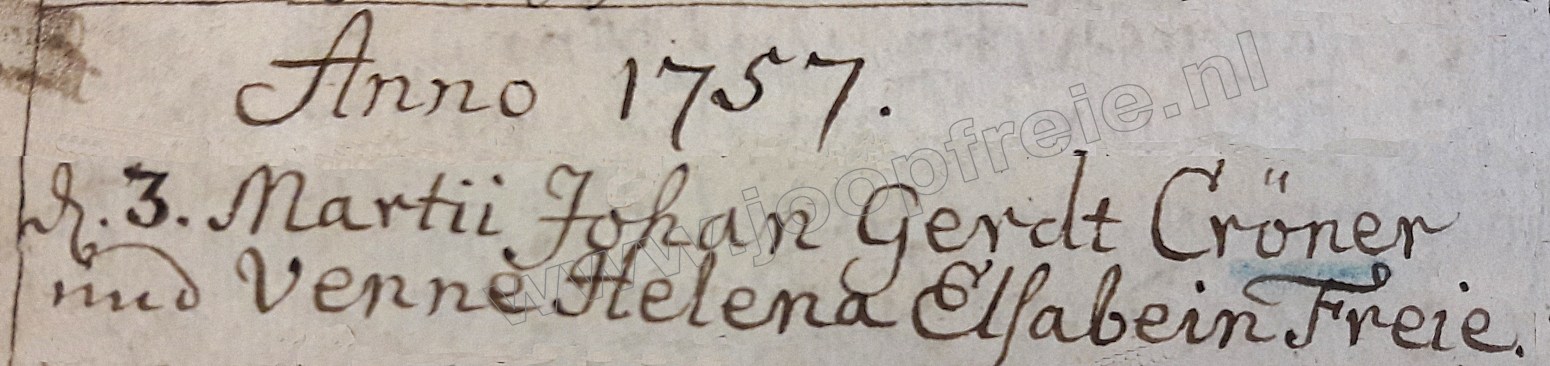 Anno 1757.
d. 3. Martii Johan Gerdt Cröner
und Venne Helena Elsabein Freie.
www.joopfreie.nl